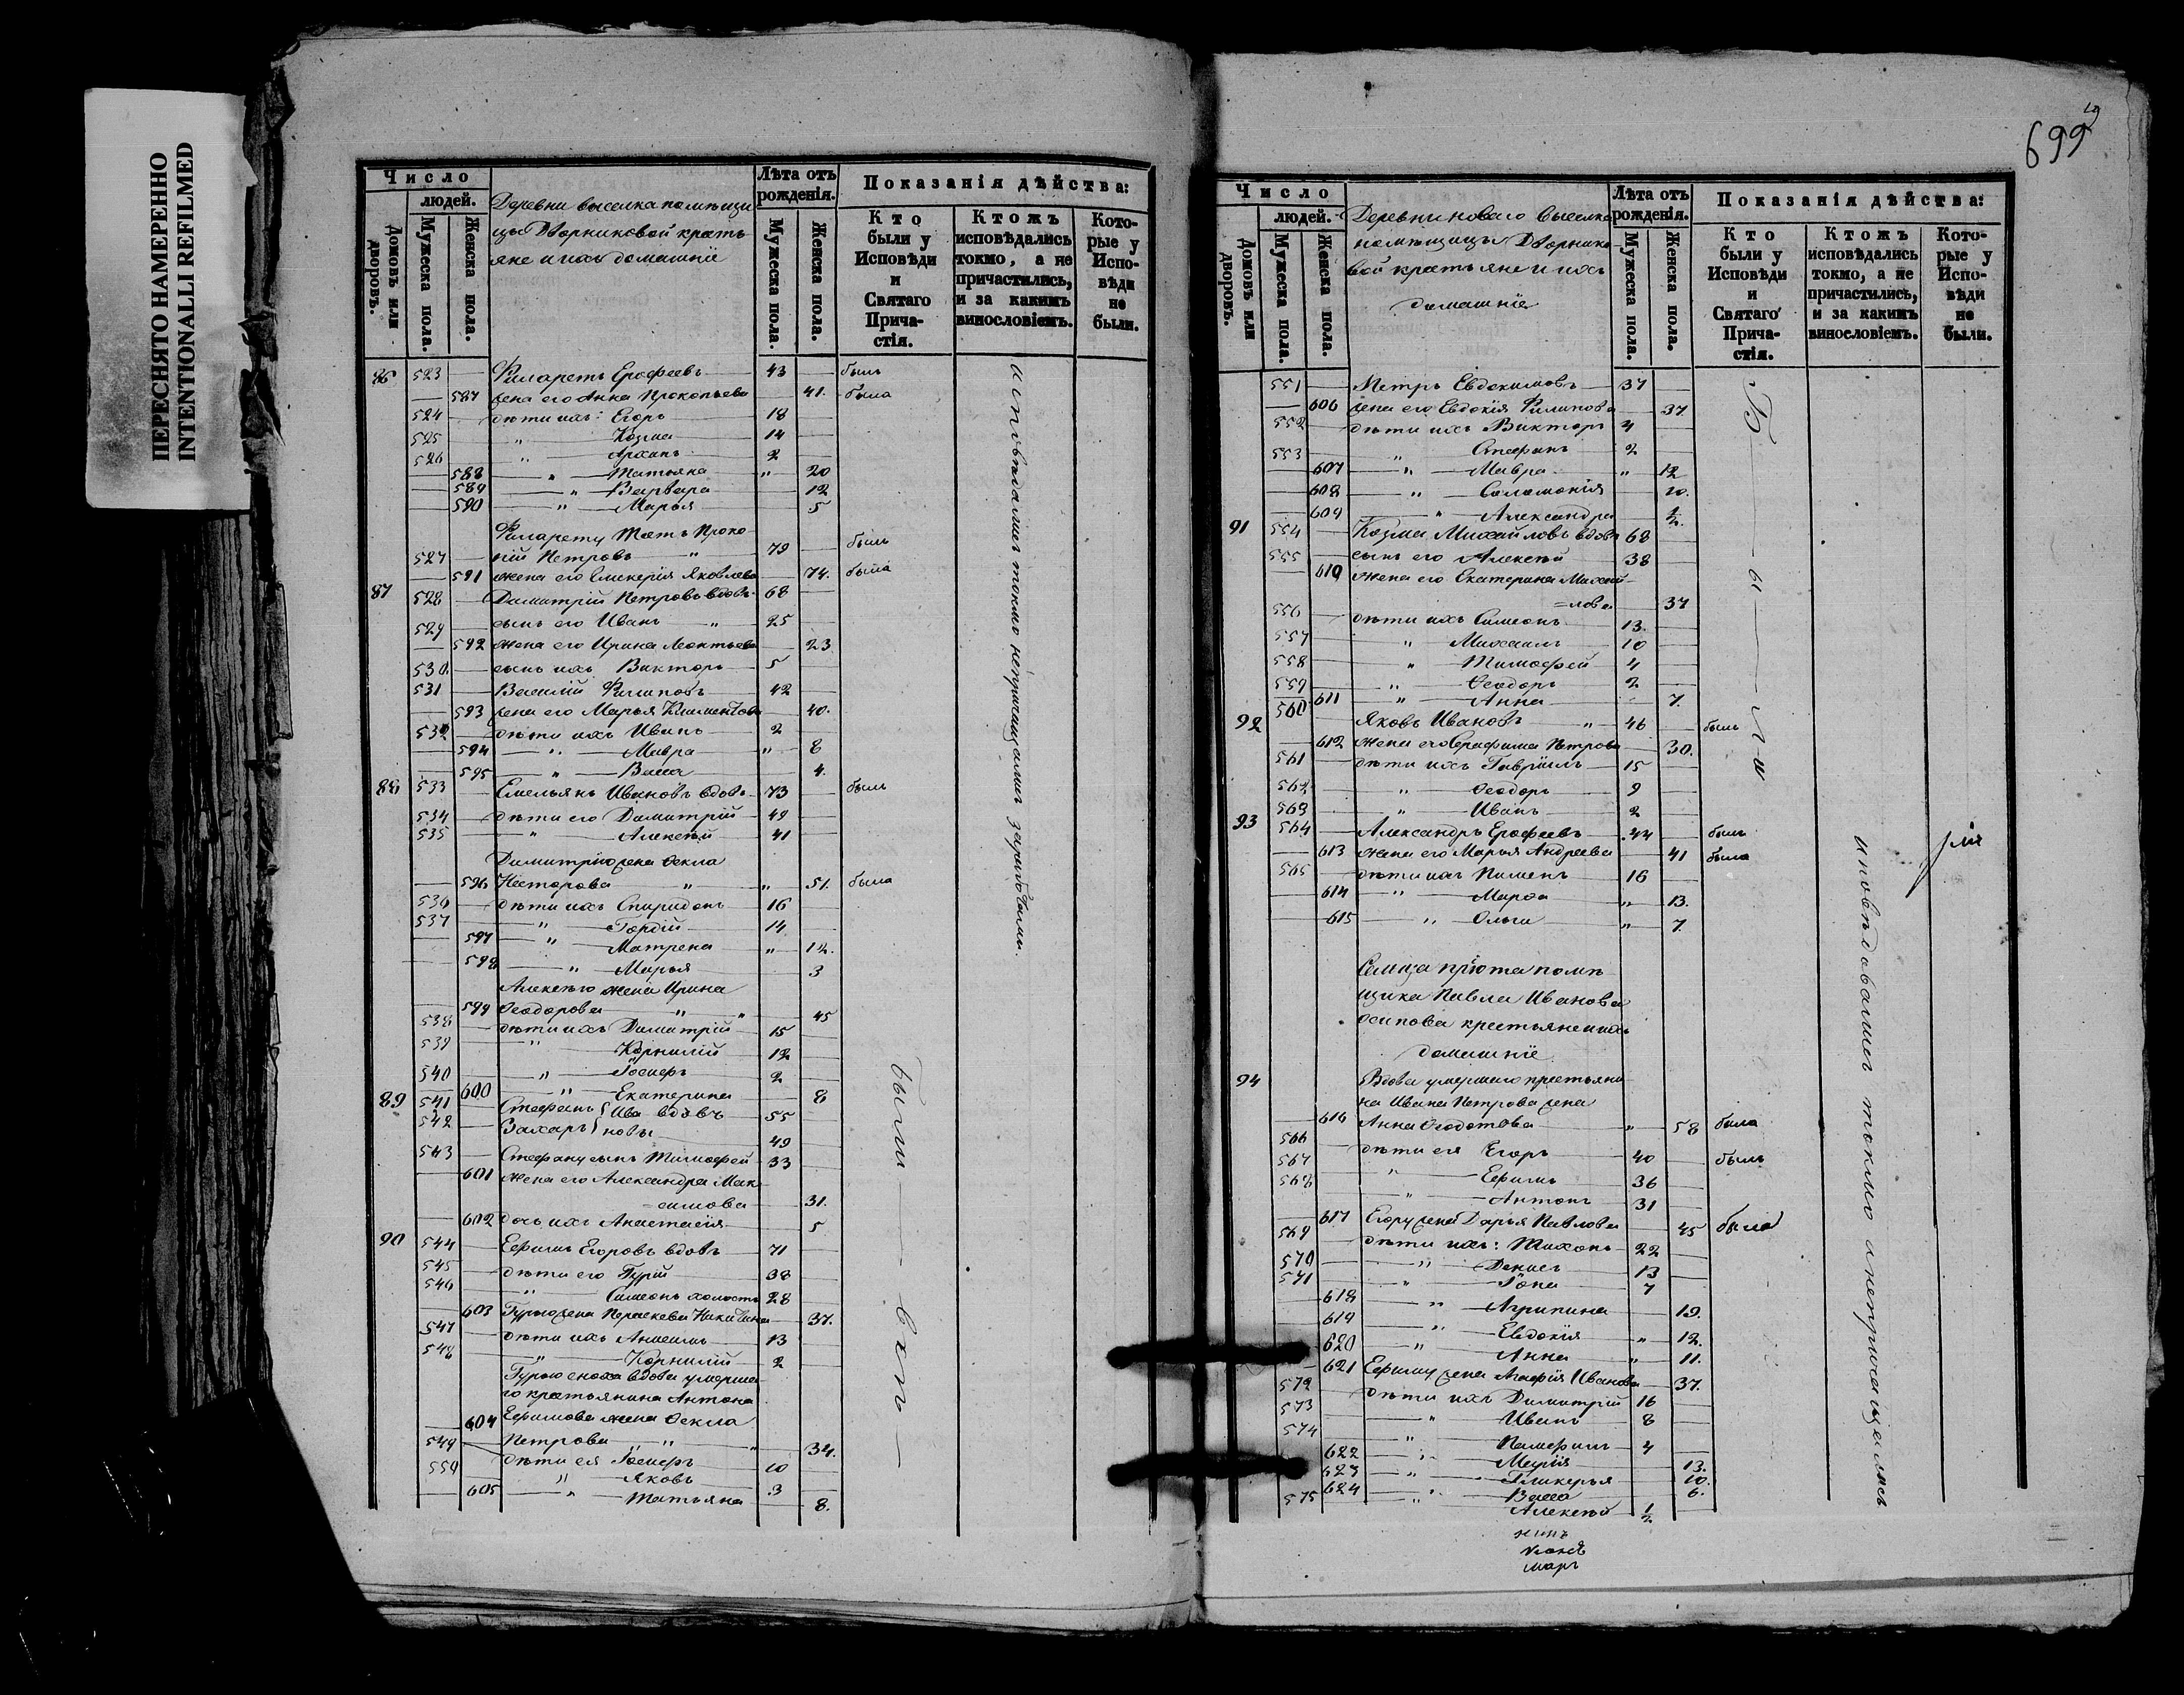 ПЕРЕСНЯТО НАМЕРЕННО
INTENTIONALLI REFILMED
699
Число
людей.
Домовъ или дворовъ.
Мужеска пола.
Женска пола.
Деревни выселка помѣщи
цы Дворниковой кресть
яне и ихъ домашніе
Лѣта отъ рожденія.
Мужеска пола.
Женска пола.
Показанія дѣйства:
Кто были у Исповѣди и Святаго Прича-стія.
Ктожъ исповѣдались токмо, а не причастились, и за какимъ винословіемъ.
Кото-рые у Испо-вѣди не были.
86 523 Филаретъ Ерофеевъ 43 былъ
587 жена его Анна Прокопьева 41. была
524 дѣти ихъ: Егоръ 18
525 " Козма 14
526 " Архипъ 2
588 " Татьяна " 20
589 " Варвара 12
590 " Марья 5
Филарету тесть Проко-
527 пій Петровъ " 79 былъ
591 жена его Гликерія Яковлева 74. была
87 528 Димитрій Петровъ вдовъ 68
529 сынъ его Иванъ " 25
592 жена его Ирина Леонтьева 23
530. сынъ ихъ Викторъ 5
531 Василій Филиповъ 42
593 жена его Марья Климентова 40.
532 дѣти ихъ Иванъ 2
594 " Мавра " 8
595 " Васса 4.
88 533 Емельянъ Ивановъ вдовъ 73 былъ
534 дѣти его Димитрій 49
535 " Алексѣй 41
Димитрію жена Ѳекла
596 Несторова " " 51. была
536 дѣти ихъ Спиридонъ 16
537 " Гордій 14
597 " Матрена " 12.
598 " Марья 3
Алексѣю жена Ирина
599 Ѳеодорова " " 45
538 дѣти ихъ Димитрій 15
539 " Корнилій 12
540 " Госифъ 2
600 " Екатерина 8
89 541 Стефанъ } Ива вдовъ 55
542 Захаръ } новы 49
543 Стефану сынъ Тимофей 33
601 жена его Александра Мак
=симова 31.
602 дочь ихъ Анастасія 5
90 544 Ефимъ Егоровъ вдовъ 71
545 дѣти его Гурій 38
546 " Симеонъ холостъ 28
603 Гурью жена Параскева Никитина 37.
547 дѣти ихъ Анисимъ 13
548 " Корнилій 2
Гурью сноха вдова умерша-
го крестьянина Антона
604 Ефимова жена Ѳекла
Петрова " " 34.
549 дѣти ея 10
550 " Яковъ 3
605 " Татьяна 8.
исповѣдались токмо непричащались за работами.
были
Число
людей.
Домовъ или дворовъ.
Мужеска пола.
Женска пола.
Деревни новаго выселка
помѣщицы Дворнико
вой крестьяне и ихъ
домашніе
Лѣта отъ рожденія.
Мужеска пола.
Женска пола.
Показанія дѣйства:
Кто были у Исповѣди и Святаго Прича-стія.
Ктожъ исповѣдались токмо, а не причастились, и за какимъ винословіемъ.
Кото-рые у Испо-вѣди не были.
551 Петръ Евдокимовъ 37
606 жена его Евдокія Филипова 37
552 дѣти ихъ Викторъ 4
553 " Стефанъ 2
607 " Мавра " 12
608 " Соломонія 10.
609 " Александра 1/2.
91 554 Козма Михайловъ вдовъ 68
555 сынъ его Алексѣй 38
610 жена его Екатерина Михай-
=лова 37
556 дѣти ихъ Симеонъ 13.
557 " Михаилъ 10
558 " Тимофей 4
559 " Ѳеодоръ 2
611 " Анна 7.
92 560 Яковъ Ивановъ " 46 былъ
612 жена его Серафима Петрова 30.
561 дѣти ихъ Гавріилъ 15
562 " Ѳеодоръ 9
563 " Иванъ 2
93 564 Александръ Ерофеевъ 44 былъ
613 жена его Марья Андреева 41 была
565 дѣти ихъ Пименъ 16
614 " Марѳа " 13.
615 " Ольга " 7.
Сельца пріюта помѣ
щика Павла Иванова
Осипова крестьяне и ихъ
домашніе
94 Вдова умершаго крестьяни
на Ивана Петрова жена
616 Анна Ѳеодотова " 58 была
566 дѣти ея Егоръ 40 былъ
567 " Ефимъ 36
568 " Антонъ 31
617 Егору жена Дарья Павлова 45 была
569 дѣти ихъ: Тихонъ 22
570 " Денисъ 13
571 " Іона 7
618 " Агрипина 19.
619 " Евдокія " 12.
620 " Анна " 11.
621 Ефиму жена Агафія Иванова 37.
572 дѣти ихъ Димитрій 16
573 " Иванъ 8
574 " Памфилъ 4
622 " Марія 13.
623 " Гликерья 10.
624 " Васса 6.
575 Алексѣй 1/2
Б ы л и
исповѣдовались токмо а непричащались